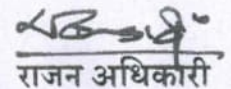 राजन अधिकारी